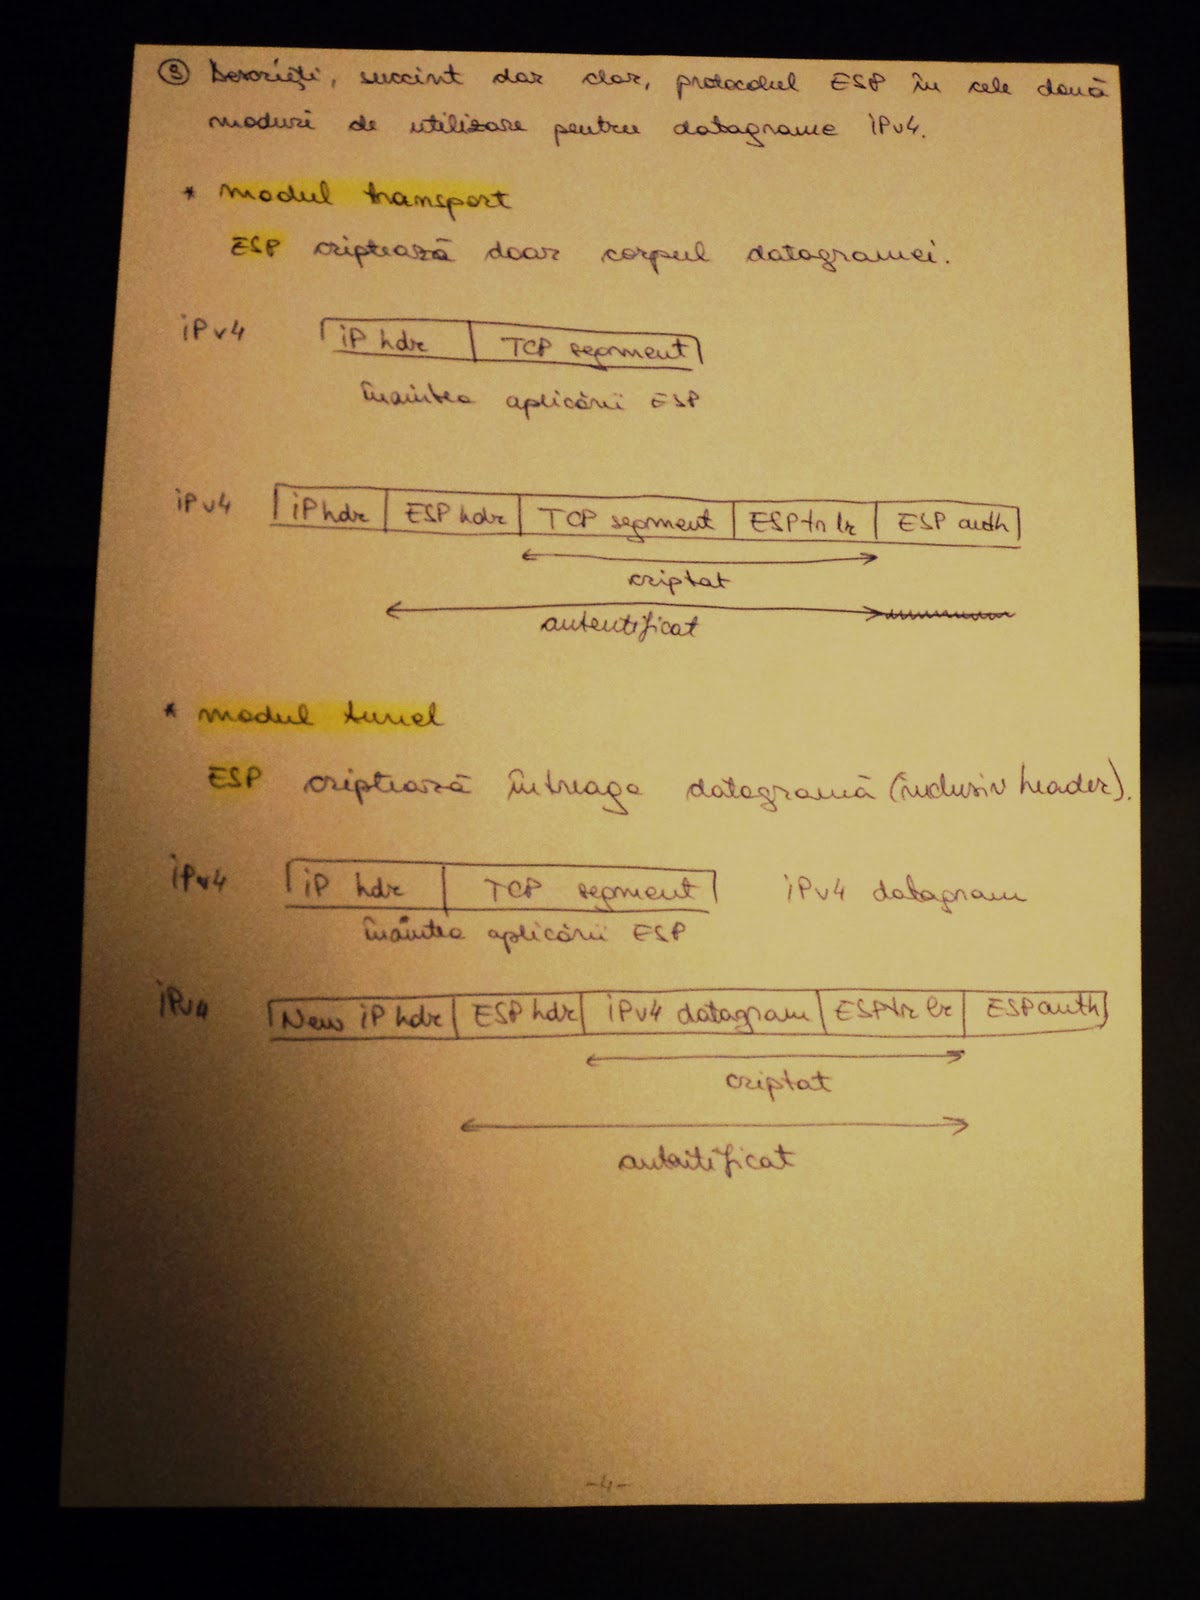 9 Descrieți, succint dar clar, protocolul ESP în cele două
moduri de utilizare pentru datagrame IPv4.
* modul transport
ESP criptează doar corpul datagramei.
IPv4 IP hdr TCP segment
înaintea aplicării ESP
IPv4 IP hdr ESP hdr TCP segment ESP trlr ESP auth
criptat
autentificat
* modul tunel
ESP criptează întreaga datagramă (inclusiv header).
IPv4 IP hdr TCP segment IPv4 datagram
înaintea aplicării ESP
IPv4 New IP hdr ESP hdr IPv4 datagram ESP trlr ESP auth
criptat
autentificat
-4-